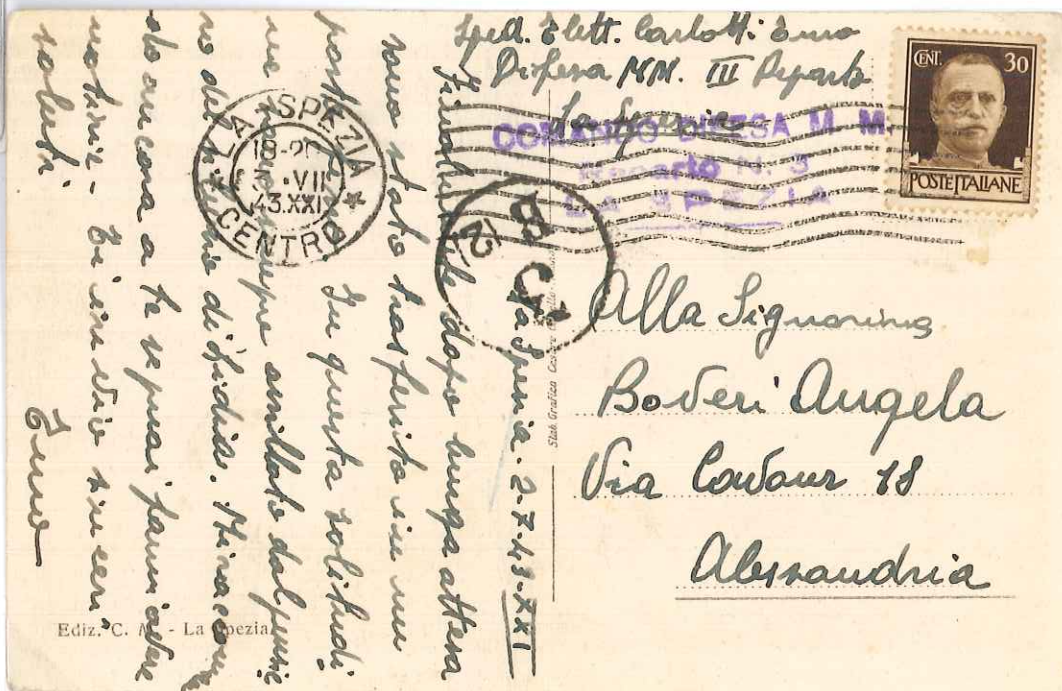 Sped. Elett. Carlotti Enno
Difesa MM. III Reparto
La Spezia
COMANDO DIFESA M. M.
Reparto N. 3
LA SPEZIA
CENT. 30
POSTE ITALIANE
LA SPEZIA
18-20
VII
43.XXI
CENTRO
B
12
Alla Signorina
Boveri Angela
Via Cavour 18
Alessandria
La Spezia - 2-7-43-XXI
Finalmente dopo lunga attesa
sono stato trasferito in un
In questa solitudi
ne sempre
di Lidia. Mi raccoman
do ancora a te di fammi avere
notizie - Ti invio sinceri
saluti
Enno
Ediz. C. M. - La Spezia
Stab. Grafico